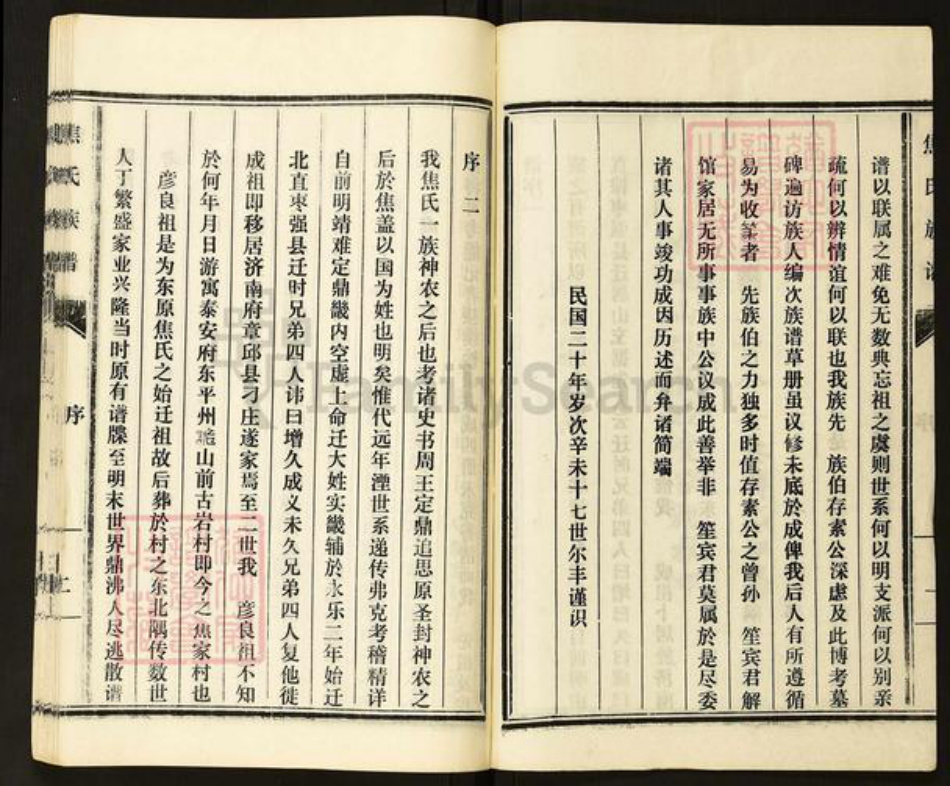 谱以联属之难免无数典忘祖之虞则世系何以明支派何以别亲
疏何以辨情谊何以联也我族先 族伯存素公深虑及此博考墓
碑遍访族人编次族谱草册虽议修未底於成俾我后人有所遵循
易为收笔者 先族伯之力独多时值存素公之曾孙 笙宾君解
馆家居无所事事族中公议成此善举非 笙宾君莫属於是尽委
诸其人事竣功成因历述而弁诸简端
民国二十年岁次辛未十七世尔丰谨识
序二
我焦氏一族神农之后也考诸史书周王定鼎追思原圣封神农之
后於焦盖以国为姓也明矣惟代远年湮世系递传弗克考稽精详
自前明靖难定鼎畿内空虚上命迁大姓实畿辅於永乐二年始迁
北直枣强县迁时兄弟四人讳曰增久成义未久兄弟四人复他徙
成祖即移居济南府章邱县刁庄遂家焉至二世我 彦良祖不知
於何年月日游寓泰安府东平州 山前古岩村即今之焦家村也
彦良祖是为东原焦氏之始迁祖故后葬於村之东北隅传数世
人丁繁盛家业兴隆当时原有谱牒至明末世界鼎沸人尽逃散谱
焦氏族谱
序
二
FamilySearch